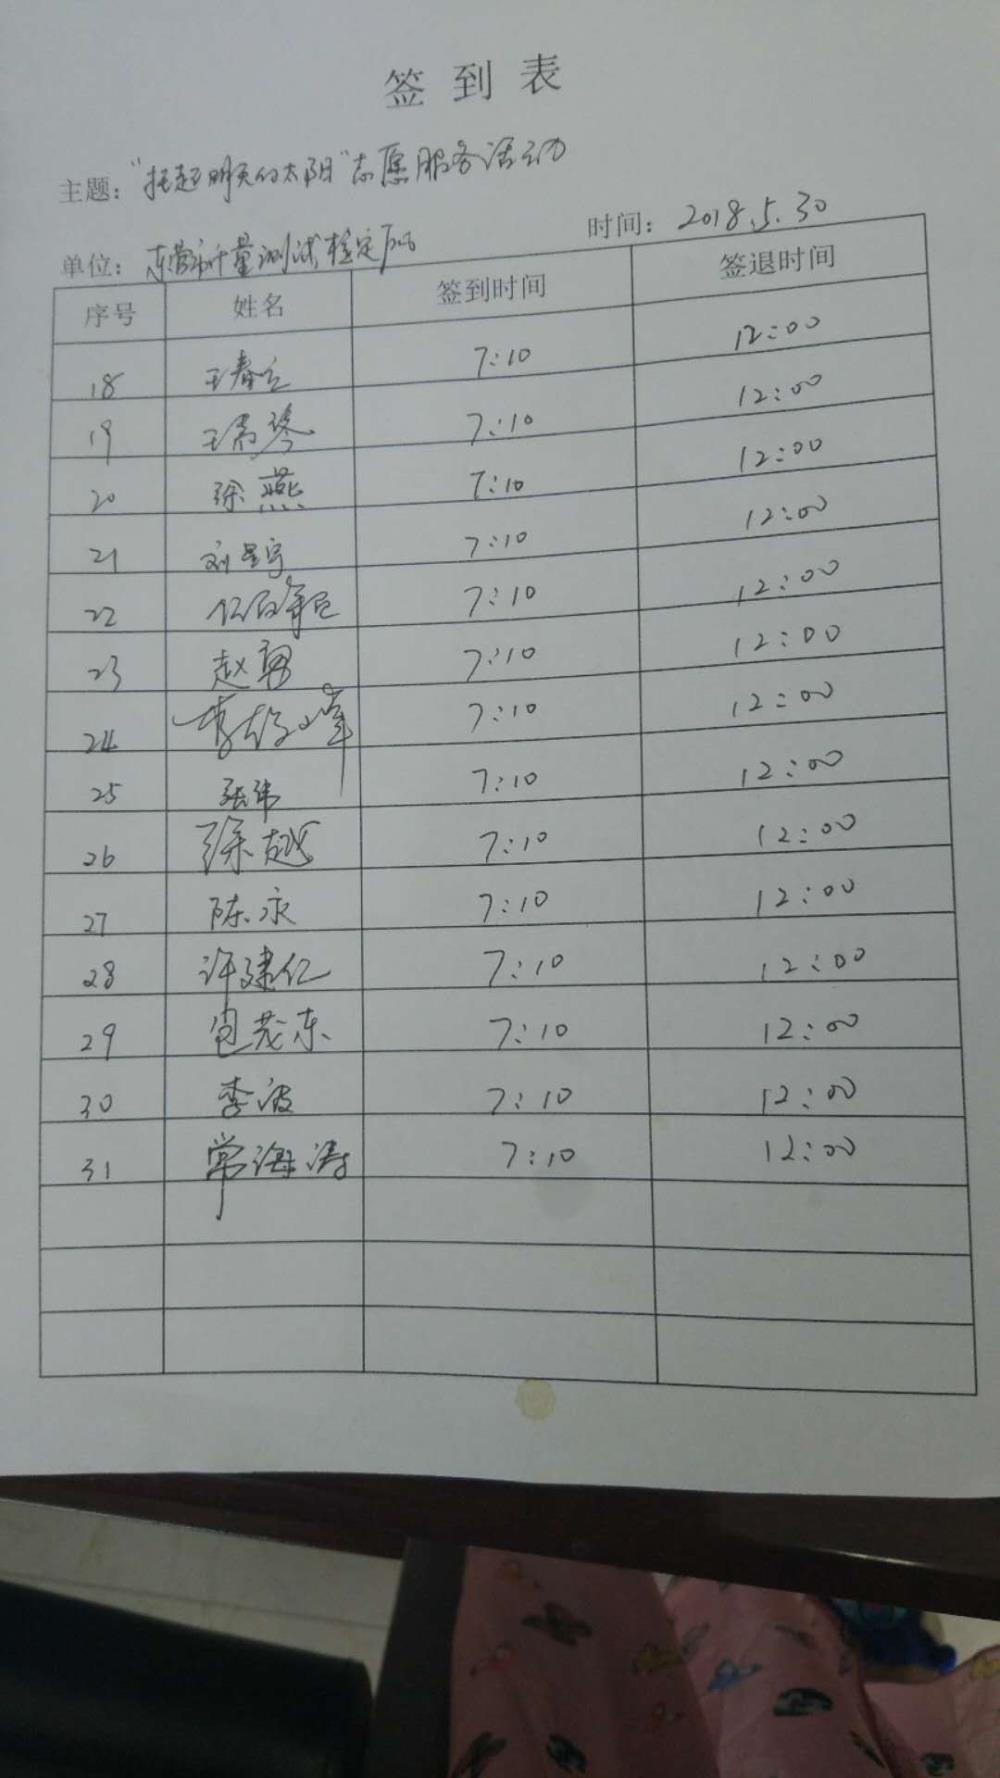 签到表
主题："托起明天的太阳"志愿服务活动
单位：东营市计量测试检定所 时间：2018.5.30
序号 姓名 签到时间 签退时间
18 王春 7:10 12:00
19 王 琴 7:10 12:00
20 徐燕 7:10 12:00
21 刘星宇 7:10 12:00
22 7:10 12:00
23 赵勇 7:10 12:00
24 李 峰 7:10 12:00
25 张伟 7:10 12:00
26 徐越 7:10 12:00
27 陈永 7:10 12:00
28 许建仁 7:10 12:00
29 包茂东 7:10 12:00
30 李波 7:10 12:00
31 常海涛 7:10 12:00